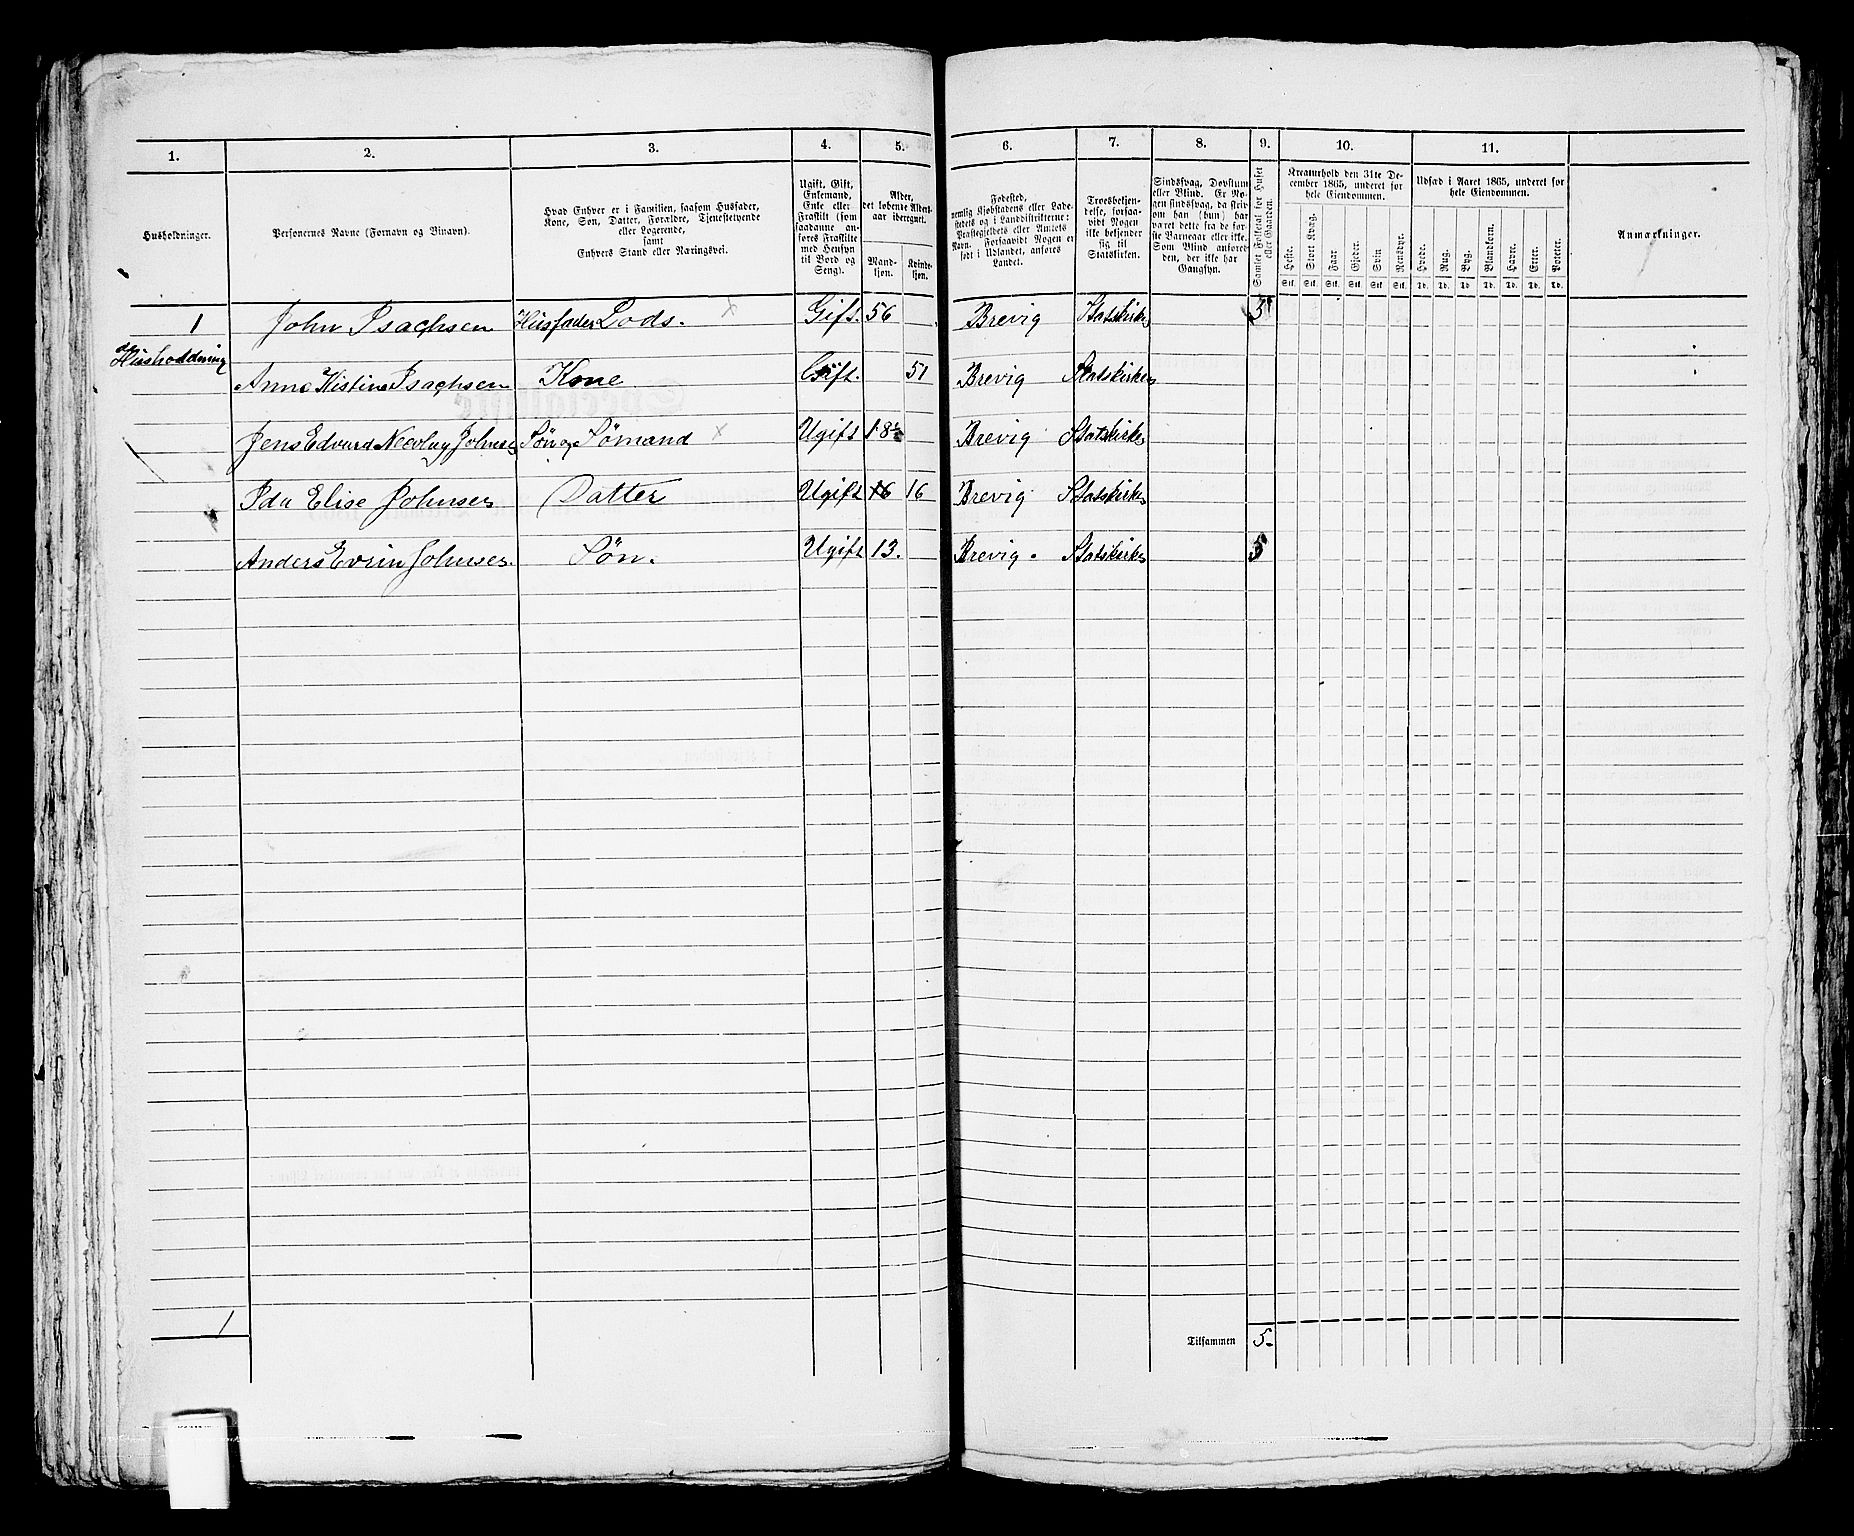 1. 2. 3. 4. 5. 6. 7. 8. 9. 10. 11.
Husholdninger.
Personernes Navne (Fornavn og Binavn).
Hvad Enhver er i Familien, saasom Husfader,
Kone, Søn, Datter, Forældre, Tjenestetyende
eller Logerende,
samt
Enhvers Stand eller Næringsvei.
Ugift, Gift,
Enkemand,
Enke eller
Fraskilt (som
saadanne an-
føres Fraskilte
med Hensyn
til Bord og
Seng).
Alder,
det løbende Alders-
aar iberegnet.
Mand-
kjøn.
Kvinde-
kjøn.
Fødested,
nemlig Kjøbstadens eller Lade-
stedets og i Landdistrikterne:
Præstegjeldets eller Amtets
Navn. Forsaavidt Nogen er
født i Udlandet, anføres
Landet.
Troesbekjen-
delse, forsaa-
vidt Nogen
ikke bekjender
sig til
Statskirken.
Sindssvag, Døvstum
eller Blind. Er No-
gen sindssvag, da skri-
ves om han (hun) har
været dette fra de før-
ste Barneaar eller ikke.
Som Blind anføres
den, der ikke har
Gangsyn.
Samlet Folketal for Huset
eller Gaarden.
Kreaturhold den 31te De-
cember 1865, underet for
hele Eiendommen.
Heste. Stort Kvæg. Faar Gjeder. Svin Rensdyr.
Stk. Stk. Stk. Stk. Stk. Stk.
Udsæd i Aaret 1865, underet for
hele Eiendommen.
Hvede. Rug. Byg. Blandkorn. Havre. Erter. Poteter.
Td. Td. Td. Td. Td. Td. Td.
Anmærkninger.
1 John Isachsen Husfader Lods. x Gift. 56 Brevig Statskirken
Husholdning
Anne Kistine Isachsen Kone Gift. 51 Brevig Statskirken
Jens Edvard Johnsen Søn og Sømand x Ugift 18 Brevig Statskirken
Ida Elise Johnsen Datter Ugift 16 16 Brevig Statskirken
Anders Johnsen. Søn. Ugift 13. Brevig. Statskirken 5
1 Tilsammen 5